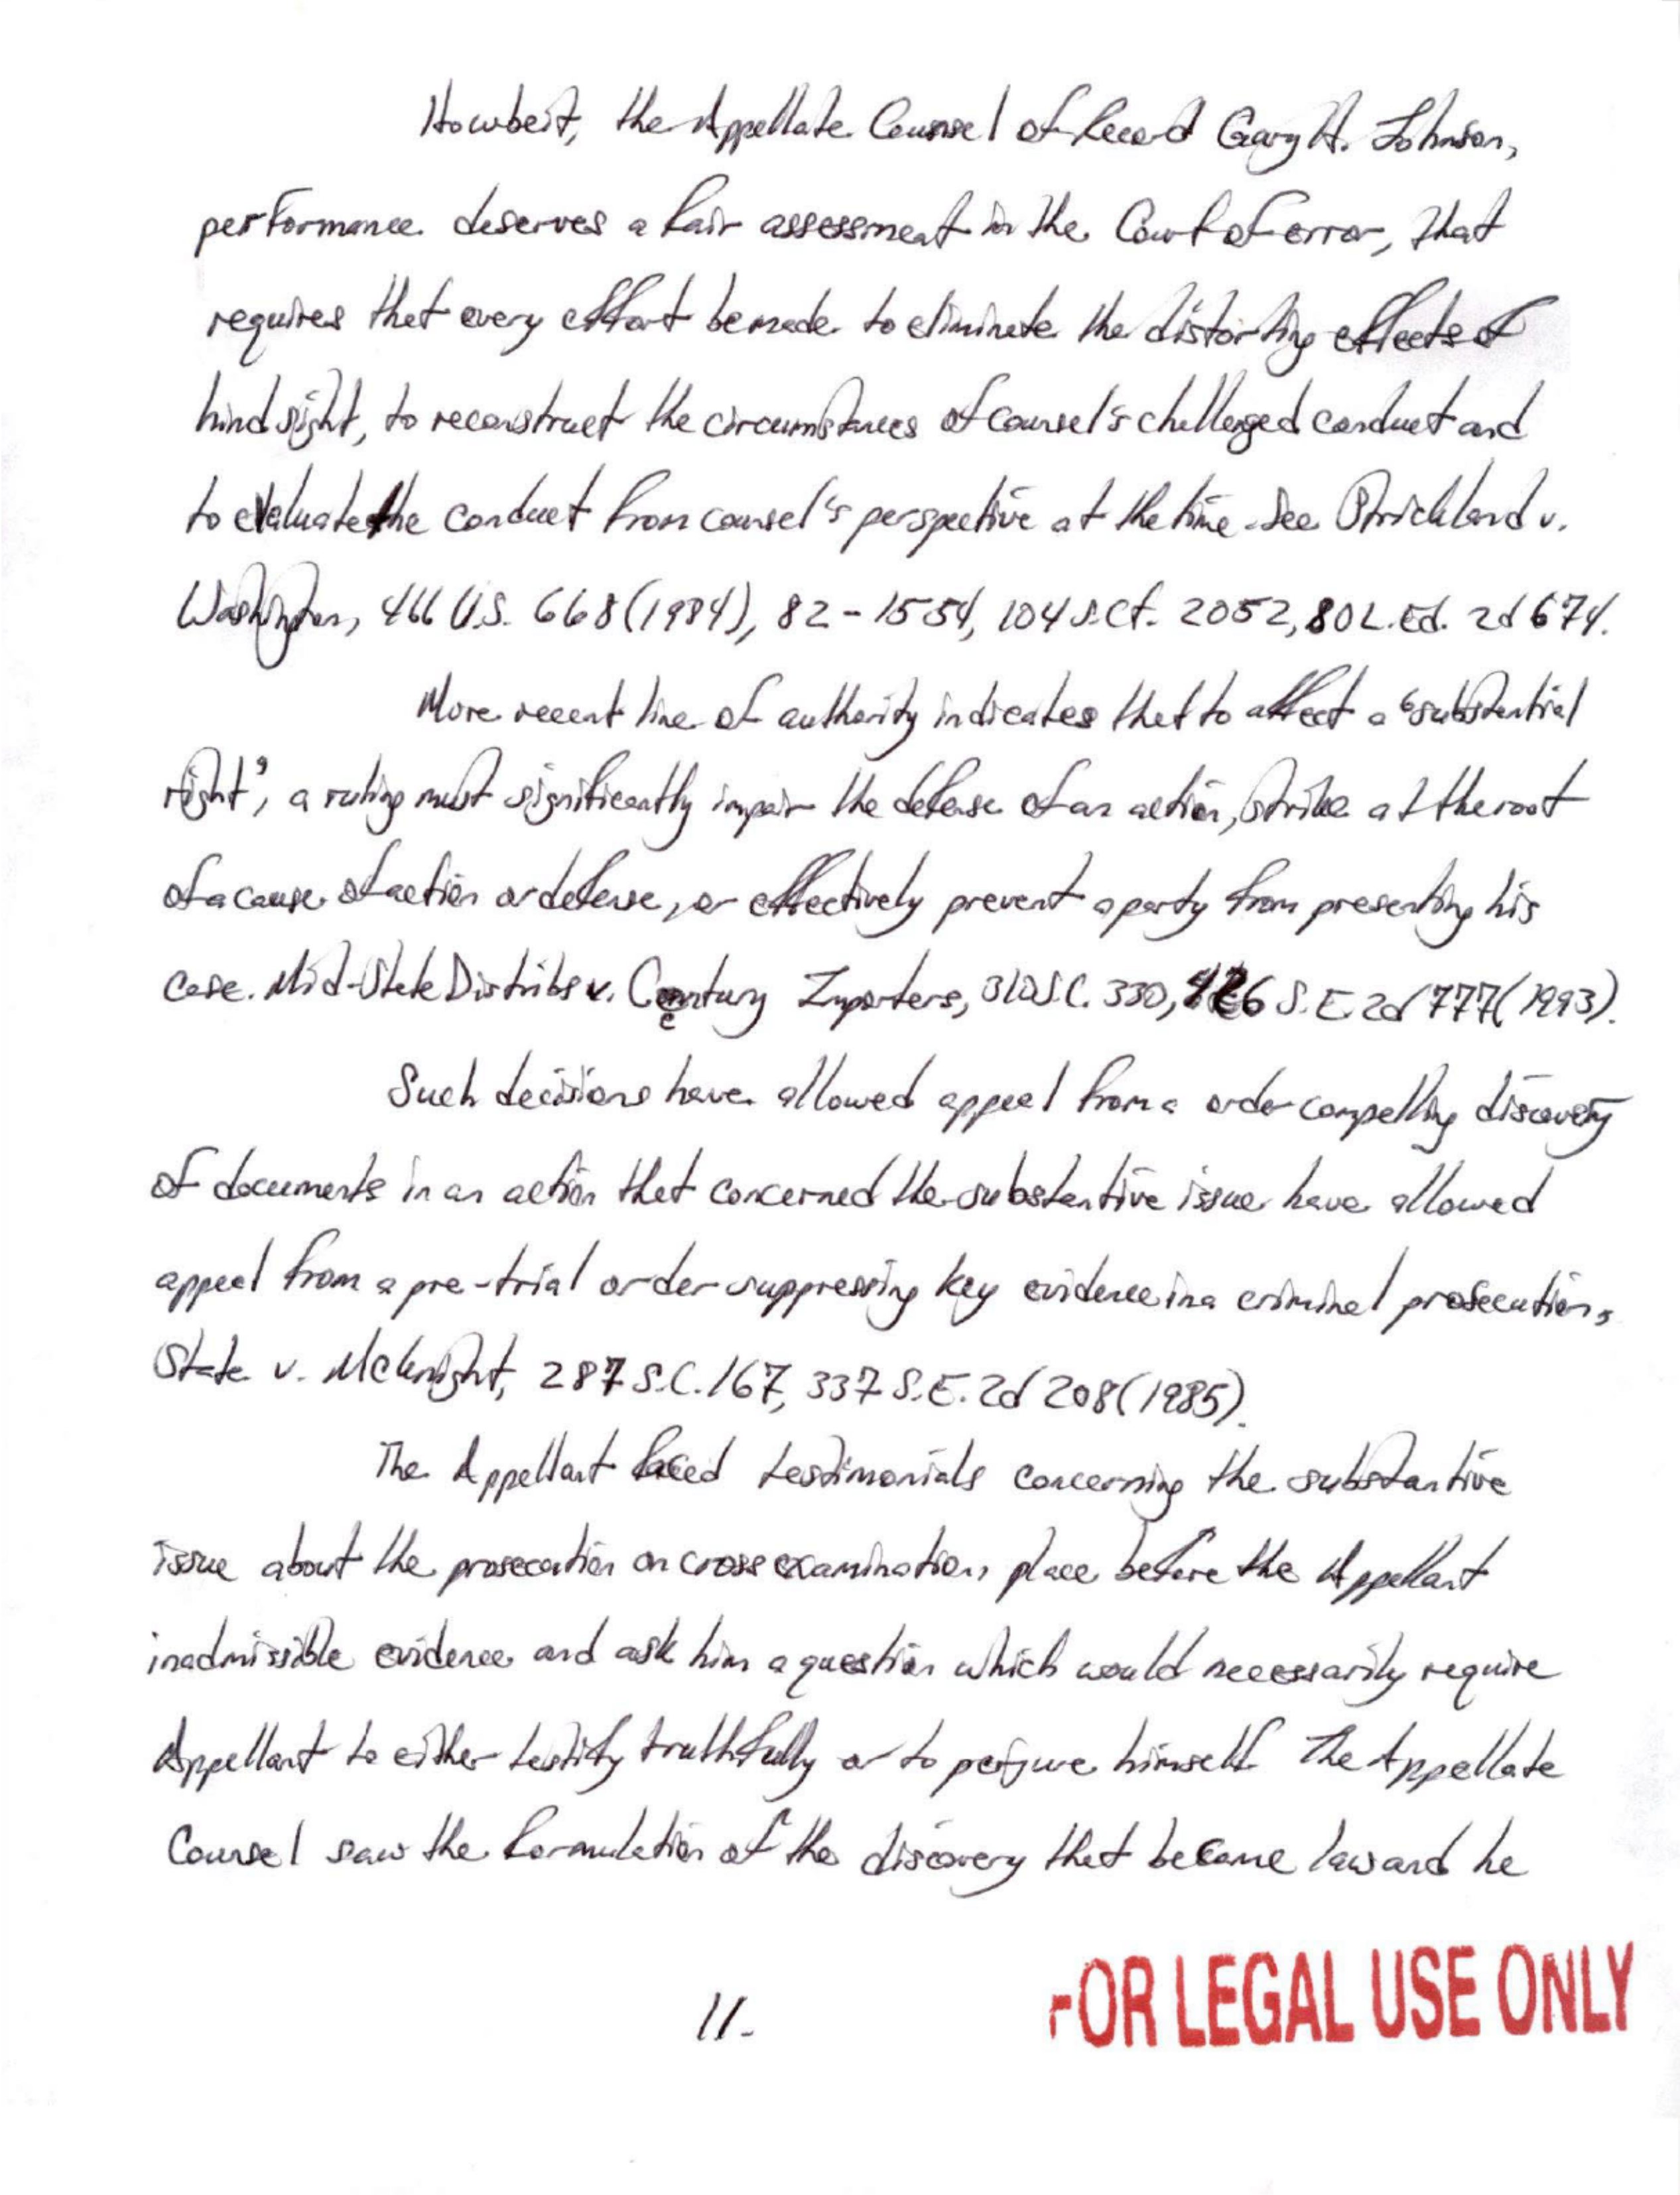 Howbeit, the Appellate Counsel of Record Gary H. Johnson,
performance deserves a fair assessment in the Court of error, that
requires that every effort be made to eliminate the distorting effects of
hind sight, to reconstruct the circumstances of counsel's challenged conduct and
to evaluate the conduct from counsel's perspective at the time. See Strickland v.
Washington, 466 U.S. 668 (1984), 82-1554, 104 S.Ct. 2052, 80 L.Ed. 2d 674.
More recent line of authority indicates that to affect a "substantial
right", a ruling must significantly impair the defense of an action, strike at the root
of a cause of action or defense, or effectively prevent a party from presenting his
case. Mid-State Distribs v. Century Importers, 310 S.C. 330, 426 S.E. 2d 777 (1993).
Such decisions have allowed appeal from a order compelling discovery
of documents in an action that concerned the substantive issue have allowed
appeal from a pre-trial order suppressing key evidence in a criminal prosecution,
State v. McKnight, 287 S.C. 167, 337 S.E. 2d 208 (1985).
The Appellant faced testimonials concerning the substantive
issue about the prosecution on cross examination, place before the Appellant
inadmissible evidence and ask him a question which would necessarily require
Appellant to either testify truthfully or to perjure himself. The Appellate
Counsel saw the formulation of the discovery that became law and he
11.
FOR LEGAL USE ONLY